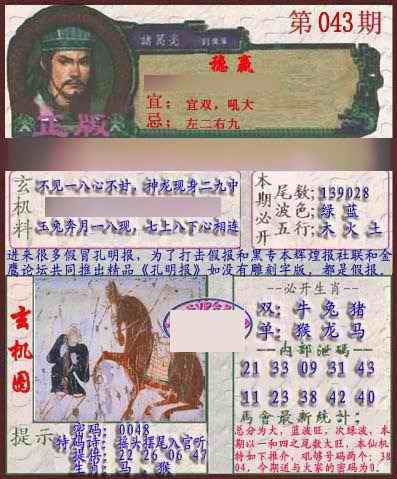 第043期
諸葛亮
穩贏
宜:宜双,吼大
忌:左二右九
正版
玄机料
不见一八心不甘,神龙现身二九中
玉兔奔月一八现,七上八下心相连
本期必开
尾数;139028
波色;绿 蓝
五行;木 火 土
进来很多假冒孔明报,为了打击假报和黑专本辉煌报社联和金
鹰论坛共同推出精品《孔明报》如没有雕刻字版,都是假报,
玄机图
--必开生肖--
双:牛 兔 猪
单:猴 龙 马
--内部泄码--
21 33 09 31 43
11 23 29 51 44
11 24 38 42 40
马會最新统计:
总分为大,蓝波旺,次绿波,本
期以一和四之尾数大旺,本仙机
特如下推介,吼够号码两个:38
04,今期送与大家的密码为0.
提示
密码:0048
特码诗:摇头摆尾入官听
提倍:22 26 06 47
生肖:马.猴